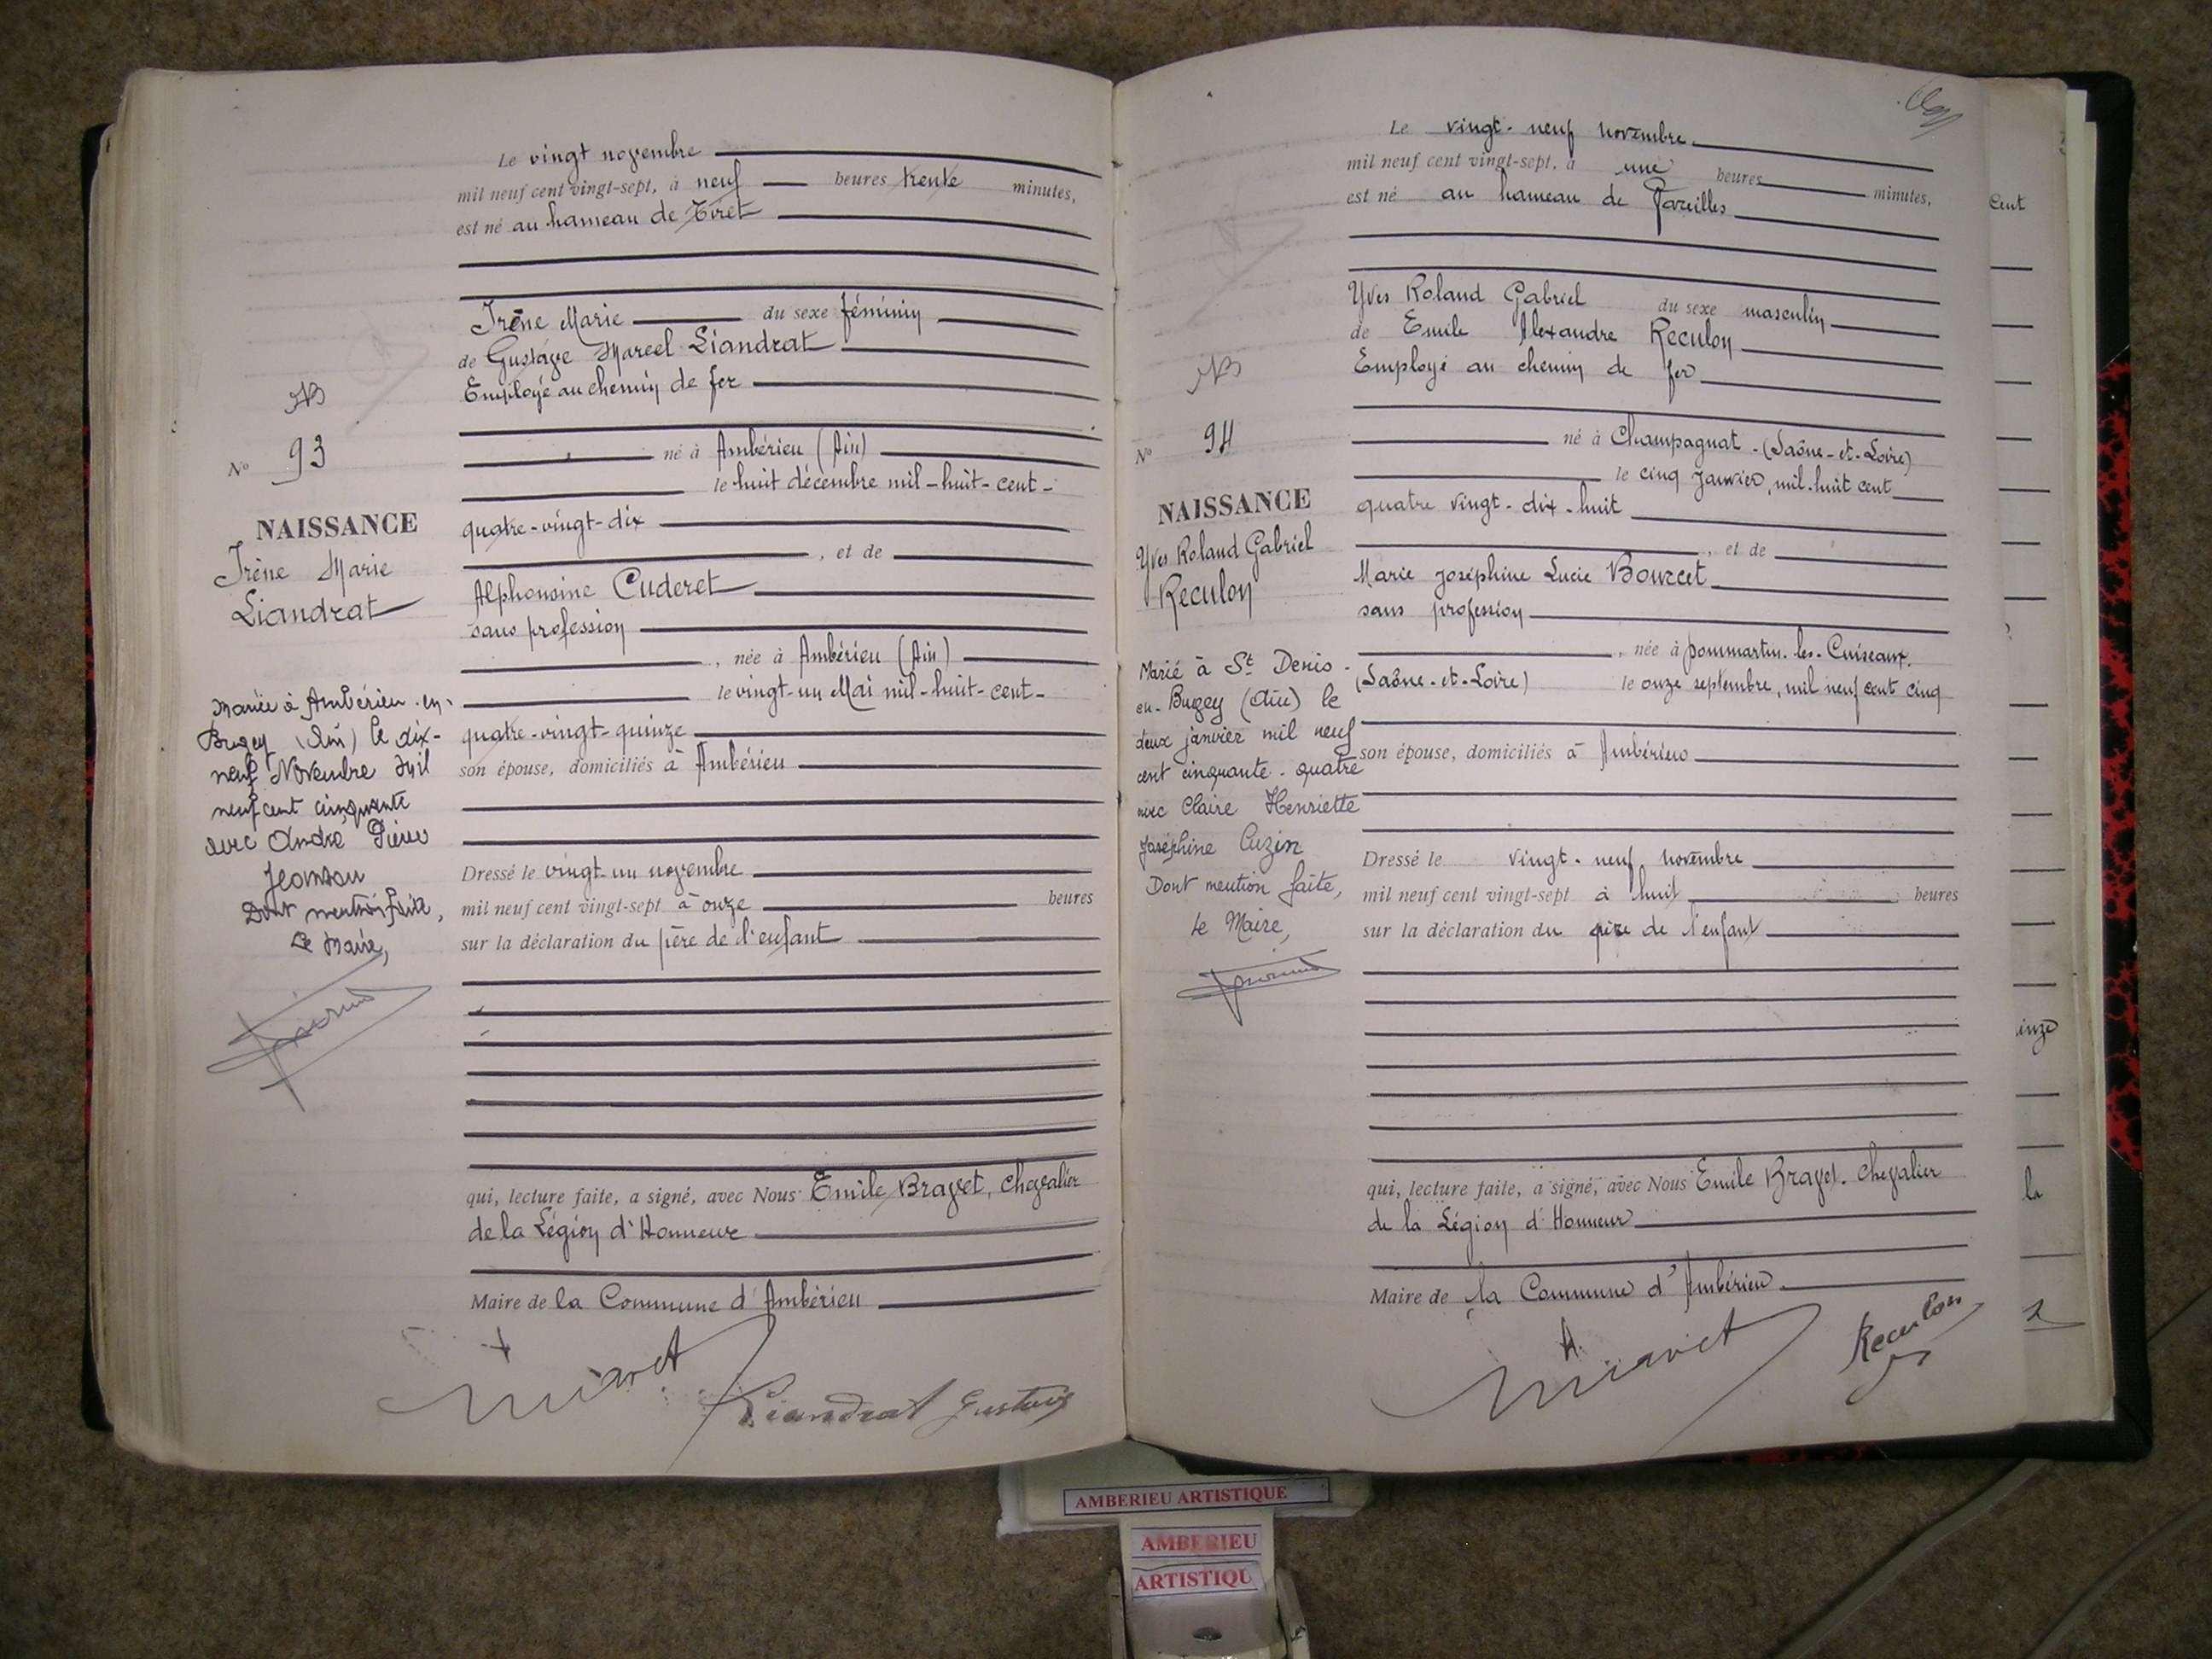 Le vingt novembre
mil neuf cent vingt-sept, à neuf heures trente minutes,
est né au hameau de Tiret
Irène Marie du sexe féminin
de Gustave Marcel Liandrat
Employé au chemin de fer
né à Ambérieu (Ain)
le huit décembre mil-huit-cent-
quatre-vingt-dix
, et de
Alphonsine Cuderet
sans profession
, née à Ambérieu (Ain)
le vingt-un Mai mil-huit-cent-
quatre-vingt-quinze
son épouse, domiciliés à Ambérieu
Dressé le vingt-un novembre
mil neuf cent vingt-sept à onze heures
sur la déclaration du père de l'enfant
qui, lecture faite, a signé, avec Nous Emile Bravet, chevalier
de la Légion d'Honneur
Maire de la Commune d'Ambérieu
Liandrat Gustave
N° 93
NAISSANCE
Irène Marie
Liandrat
Mariée à Ambérieu-en-
Bugey (Ain) le dix-
neuf Novembre mil
neuf cent cinquante
avec André Pierre
Dont mention faite,
Le Maire,
Le vingt-neuf novembre
mil neuf cent vingt-sept, à une heures minutes,
est né au hameau de Vareilles
Yves Roland Gabriel du sexe masculin
de Emile Alexandre Reculon
Employé au chemin de fer
né à Champagnat-(Saône-et-Loire)
le cinq Janvier, mil-huit cent
quatre vingt-dix-huit
, et de
Marie Joséphine Lucie Bourcet
sans profession
, née à Dommartin-les-Cuiseaux.
(Saône-et-Loire) le onze septembre, mil neuf cent cinq
son épouse, domiciliés à Ambérieu
Dressé le vingt-neuf novembre
mil neuf cent vingt-sept à huit heures
sur la déclaration du père de l'enfant
qui, lecture faite, a signé, avec Nous Emile Bravet. chevalier
de la Légion d'Honneur
Maire de la Commune d'Ambérieu
Reculon
N° 94
NAISSANCE
Yves Roland Gabriel
Reculon
Marié à St Denis-
en-Bugey (Ain) le
deux janvier mil neuf
cent cinquante-quatre
avec Claire Henriette
Joséphine Cuzin
Dont mention faite,
Le Maire,
cent
inze
la
AMBERIEU ARTISTIQUE
AMBERIEU
ARTISTIQU